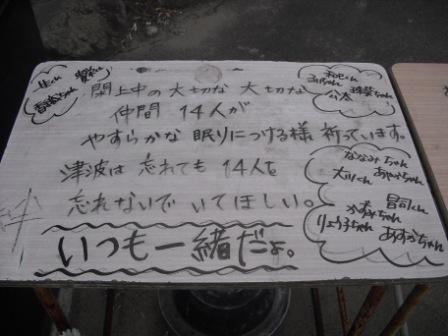 閖上中の大切な大切な
仲間14人が
やすらかな眠りにつける様祈っています。
津波は忘れても14人を
忘れないでいてほしい。
いつも一緒だよ。
絆
公太
ななみちゃん
あやかちゃん
大川くん
昌司くん
かずみちゃん
りょう子ちゃん
あすかちゃん